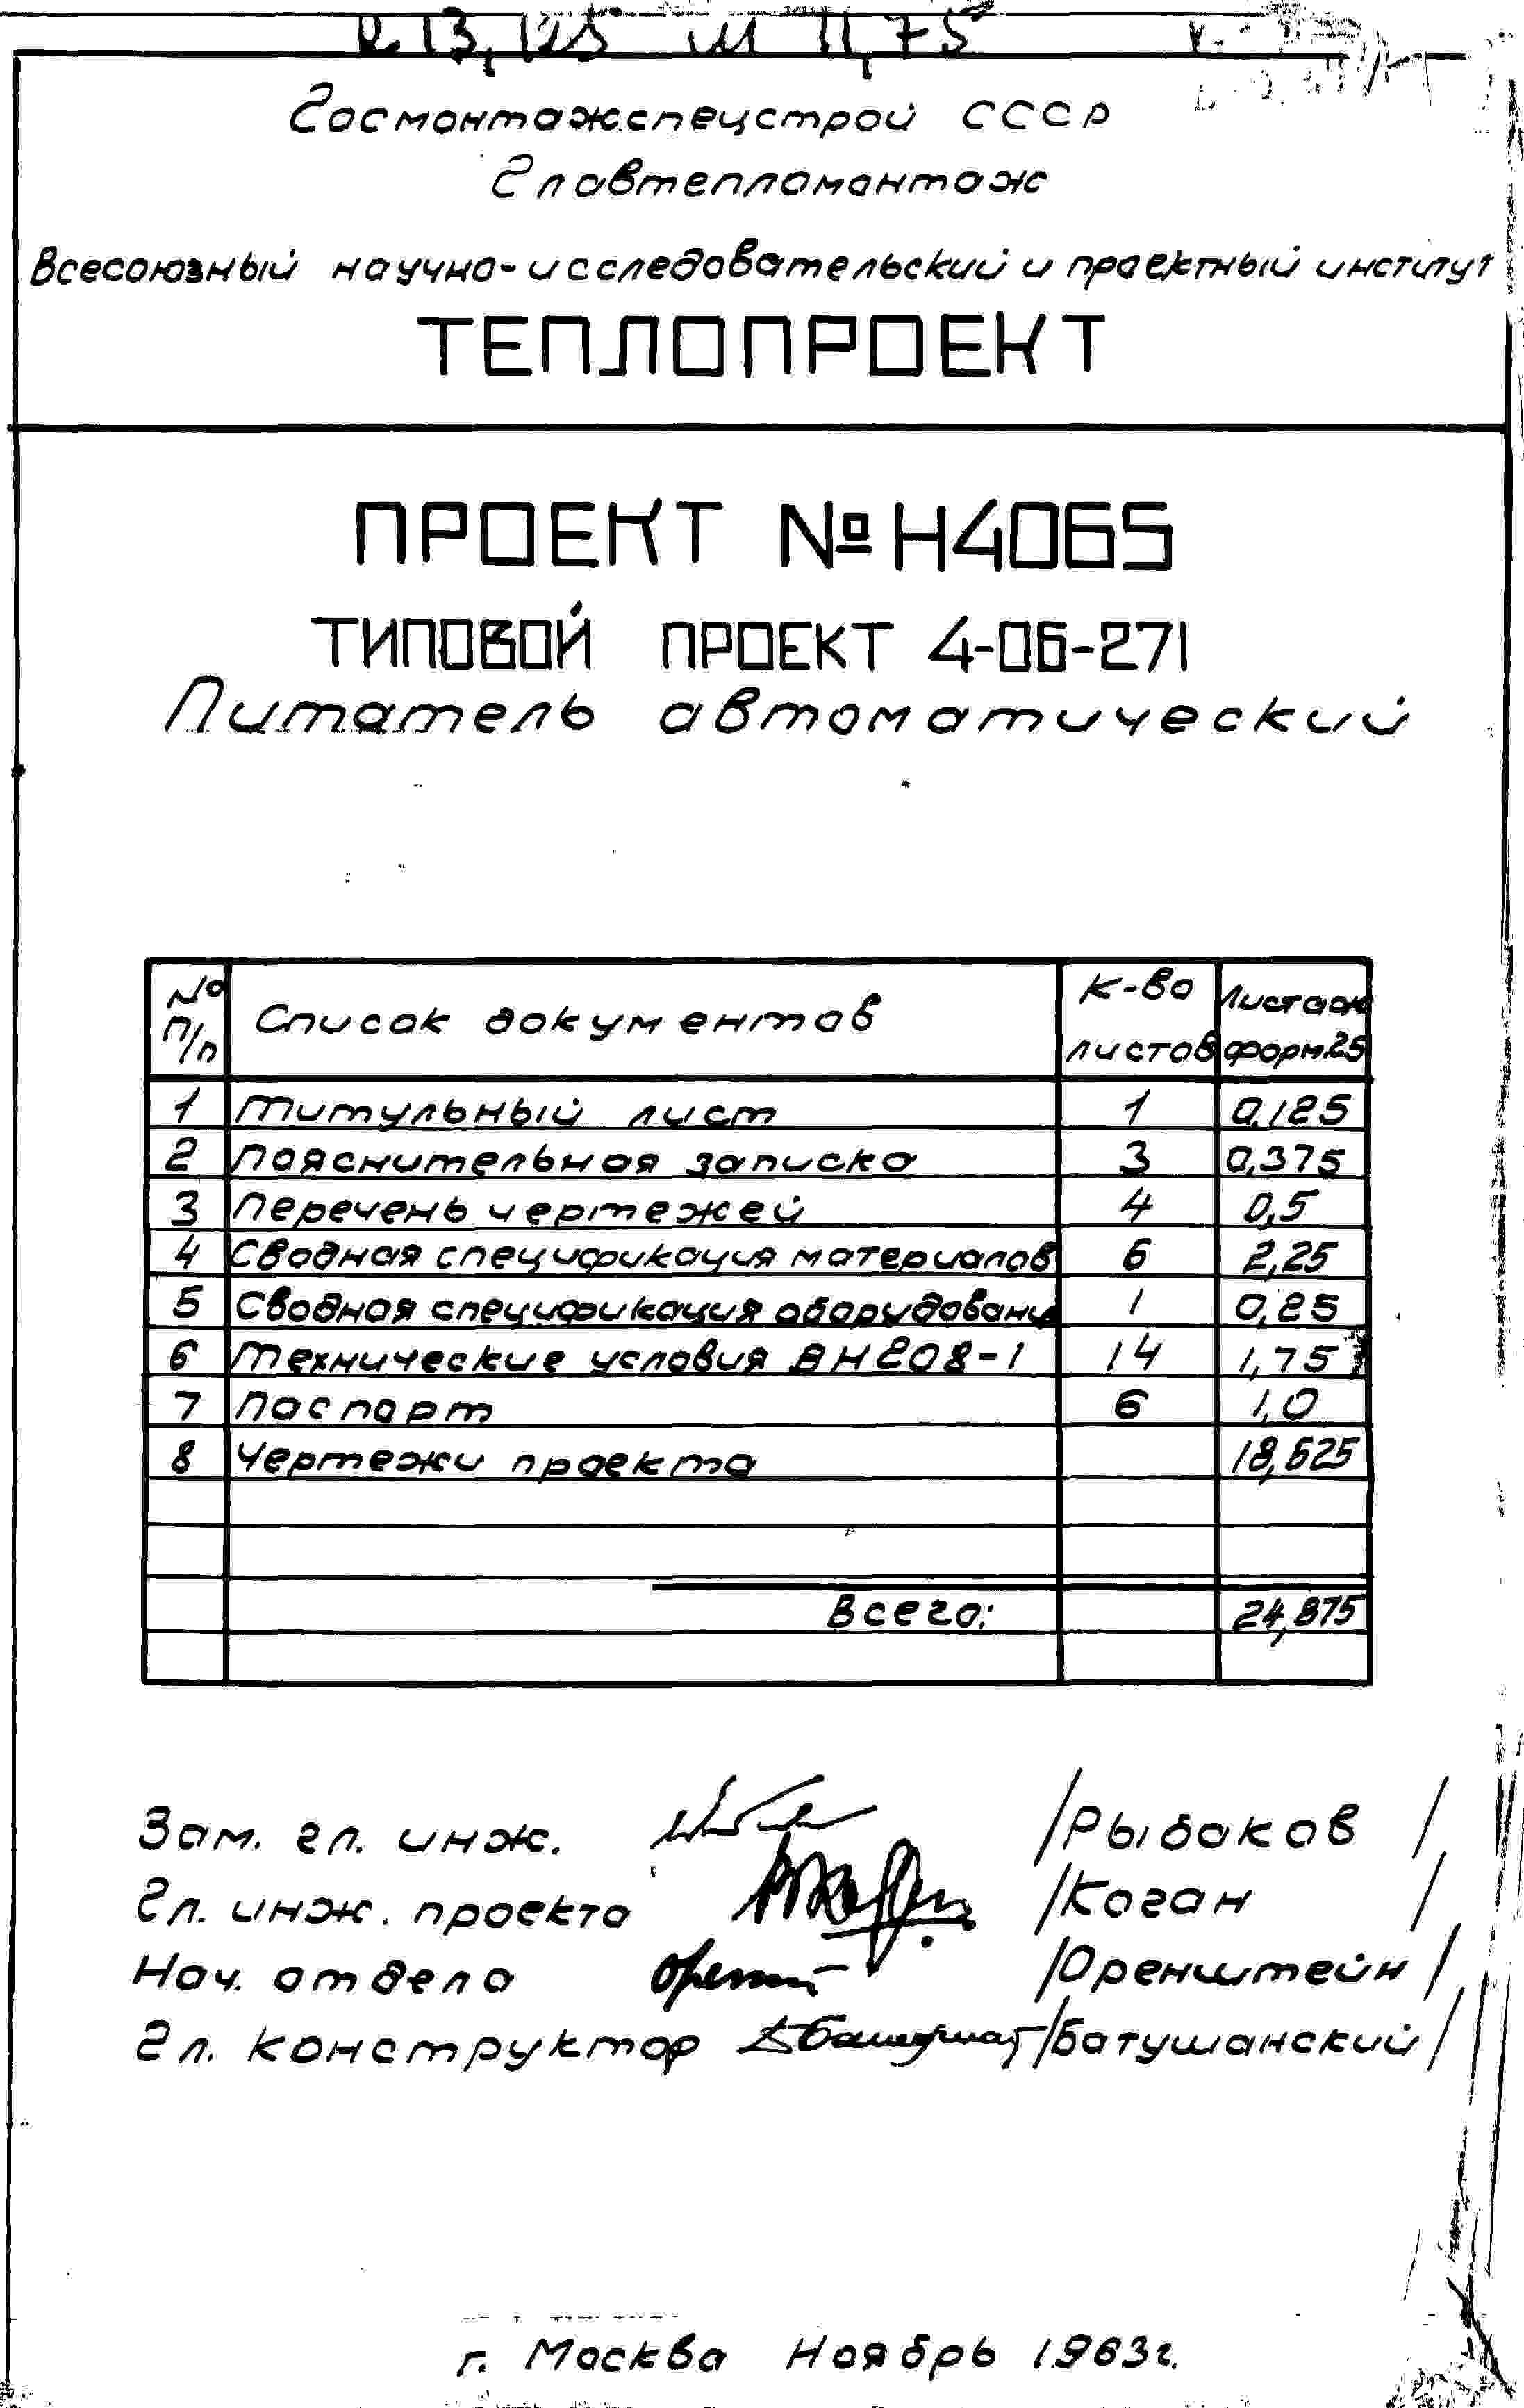 к 13,125 м 11,75
Госмонтажспецстрой СССР
Главтепломонтаж
Всесоюзный научно-исследовательский и проектный институт
ТЕПЛОПРОЕКТ
ПРОЕКТ № Н4065
ТИПОВОЙ ПРОЕКТ 4-06-271
Питатель автоматический
№ п/п Список документов К-во листов Листаж форм.25
1 Титульный лист 1 0,125
2 Пояснительная записка 3 0,375
3 Перечень чертежей 4 0,5
4 Сводная спецификация материалов 6 2,25
5 Сводная спецификация оборудовани 1 0,25
6 Технические условия ВН208-1 14 1,75
7 Паспорт 6 1,0
8 Чертежи проекта 18,625
Всего: 24,875
Зам. гл. инж. /Рыбаков/
Гл. инж. проекта /Коган/
Нач. отдела /Оренштейн/
Гл. конструктор /Батушанский/
г. Москва Ноябрь 1963г.